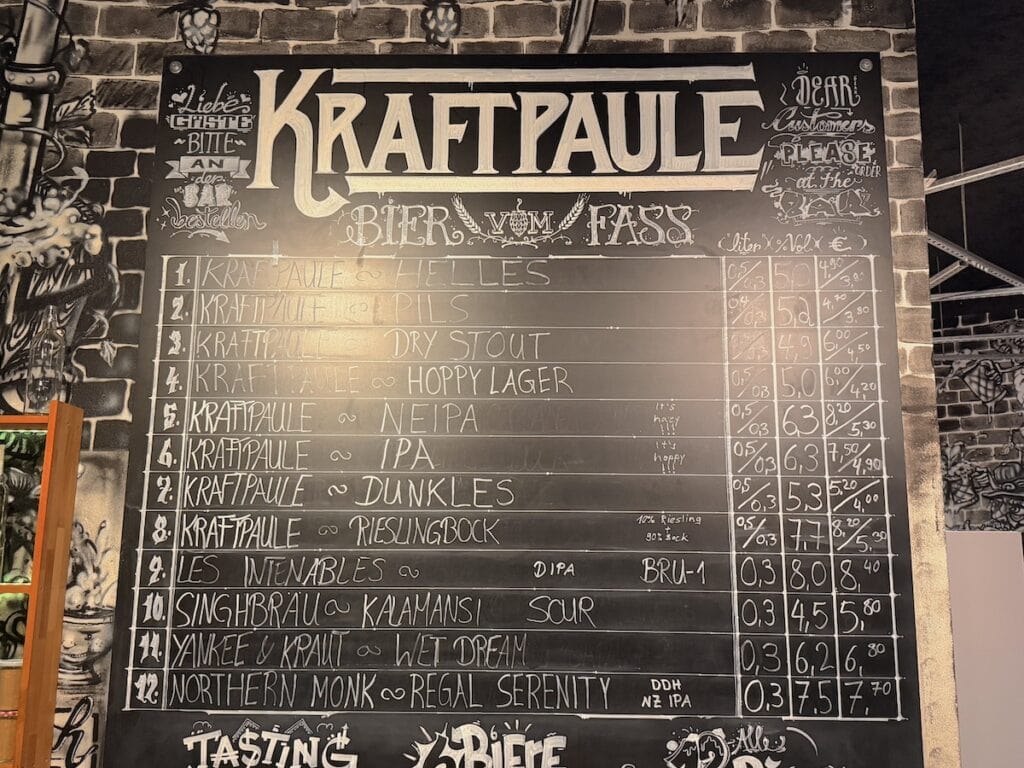 Liebe
GÄSTE
BITTE
AN
der
BAR
bestellen
KRAFTPAULE
DEAR
Customers
PLEASE
ORDER
at the
BAR
BIER VOM FASS
liter % Vol €
1. KRAFTPAULE ~ HELLES 0,5/0,3 5,0 4,90/3,90
2. KRAFTPAULE ~ PILS 0,4/0,3 5,2 4,70/3,80
3. KRAFTPAULE ~ DRY STOUT 0,5/0,3 4,9 6,00/4,50
4. KRAFTPAULE ~ HOPPY LAGER 0,5/0,3 5,0 6,00/4,20
5. KRAFTPAULE ~ NEIPA It's hazy !!! 0,5/0,3 6,3 8,20/5,30
6. KRAFTPAULE ~ IPA It's hoppy !!! 0,5/0,3 6,3 7,50/4,90
7. KRAFTPAULE ~ DUNKLES 0,5/0,3 5,3 5,20/4,00
8. KRAFTPAULE ~ RIESLINGBOCK 10% Riesling 90% Bock 0,5/0,3 7,7 8,20/5,30
9. LES INTENABLES ~ DIPA BRU-1 0,3 8,0 8,40
10. SINGHBRÄU ~ KALAMANSI SOUR 0,3 4,5 5,80
11. YANKEE & KRAUT ~ WET DREAM 0,3 6,2 6,80
12. NORTHERN MONK ~ REGAL SERENITY DDH NZ IPA 0,3 7,5 7,70
TASTING BIERE Alle